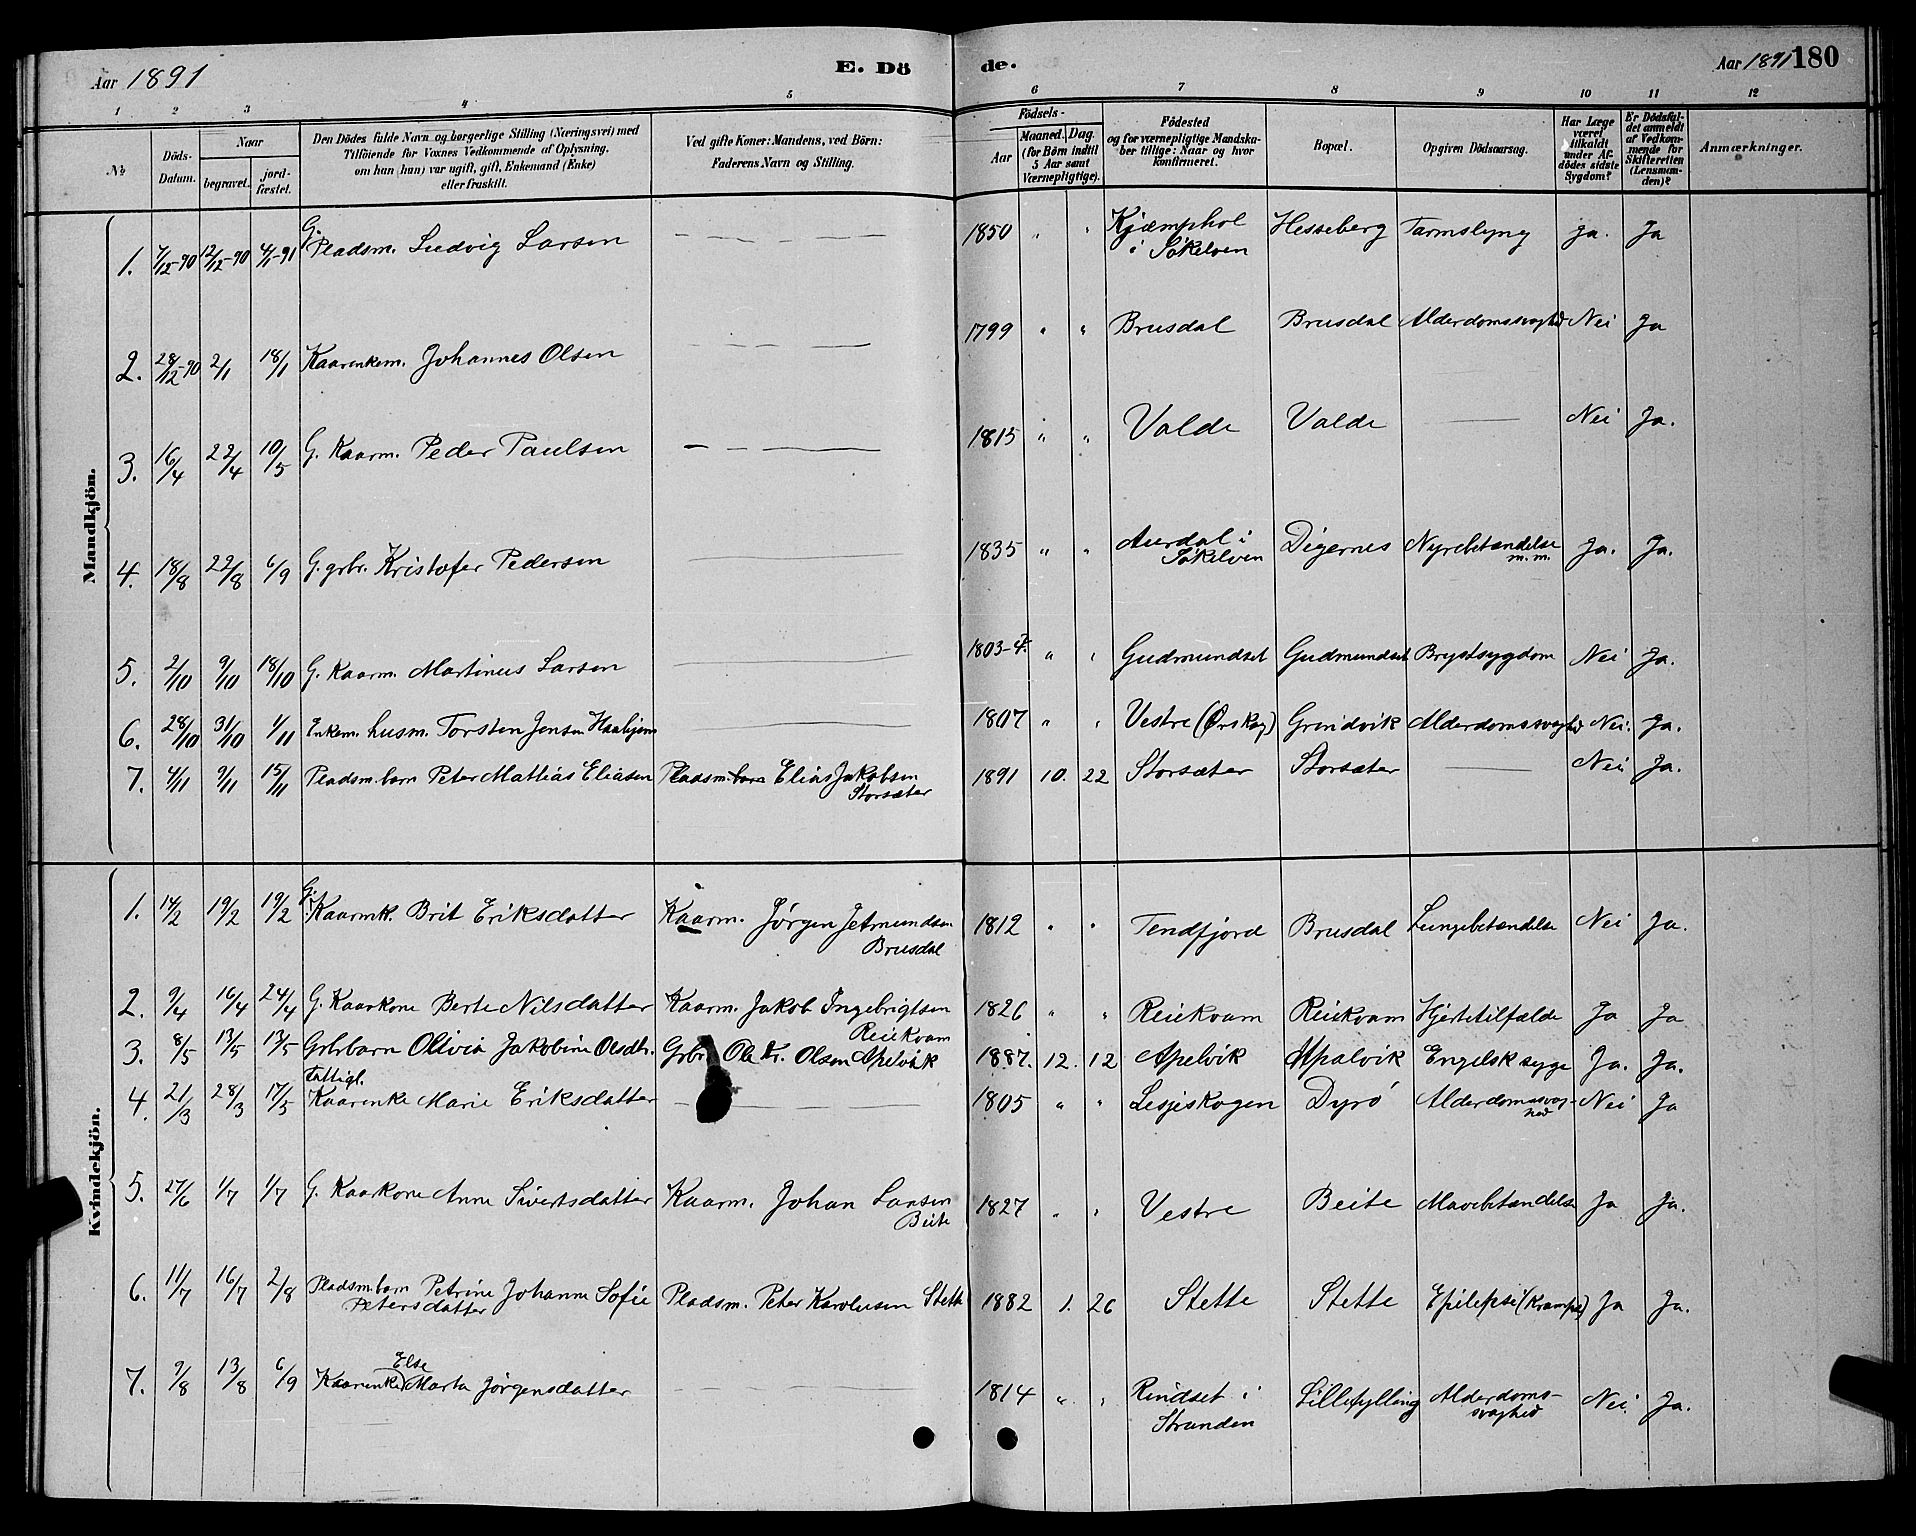 Aar 1891
E. Dö
de.
Aar 1891 180
1 2 3 4 5 6 7 8 9 10 11 12
№
Döds-Datum.
Naar
begravet.
jord-fæstet.
Den Dödes fulde Navn og borgerlige Stilling (Næringsvei) med
Tilföiende for Voxnes Vedkommende af Oplysning,
om han (hun) var ugift, gift, Enkemand (Enke)
eller fraskilt.
Ved gifte Koner: Mandens, ved Börn:
Faderens Navn og Stilling.
Födsels-
Aar
Maaned. Dag.
(for Börn indtil
5 Aar samt
Værnepligtige).
Födested
og for værnepligtige Mandska-
ber tillige: Naar og hvor
konfirmeret.
Bopæl.
Opgiven Dödsaarsag.
Har Læge
været
tilkaldt
under Af-
dödes sidste
Sygdom?
Er Dödsfal-
det anmeldt
af Vedkom-
mende for
Skifteretten
(Lensman-
den)?
Anmærkninger.
Mandkjön.
1. 7/12-90 12/12-90 4/1-91 G. Pladsm. Ludvig Larsen — 1850 " " Kjæmphol i Søkelven Hesseberg Tarmslyng Ja. Ja
2. 28/12-90 2/1 18/1 Kaarenkem. Johannes Olsen — 1799 " " Brusdal Brusdal Alderdomssvaghed Nei Ja
3. 16/4 22/4 10/5 G. Kaarm. Peder Paulsen — 1815 " " Valde Valde — Nei Ja.
4. 18/8 22/8 6/9 G. grbr. Kristofer Pedersen — 1835 " " Aurdal i Søkelven Digernes Nyrebetændelse m.m. Ja. Ja.
5. 2/10 9/10 18/10 G. Kaarm. Martinus Larsen — 1803-4. " " Gudmundset Gudmundset Brystsygdom Nei Ja.
6. 28/10 31/10 1/11 Enkem. husm. Torsten Jensen Haabjørn — 1807 " " Vestre (Ørskog) Grendvik Alderdomssvaghed Nei. Ja.
7. 4/11 9/11 15/11 Pladsm.barn Peter Mattias Eliasen Pladsm. Elias Jakobsen Storsæter 1891 10. 22 Storsæter Storsæter — Nei Ja.
Kvindekjön.
1. 14/2 19/2 19/2 G. Kaarmk. Brit Eriksdatter Kaarm. Jørgen Jetmundsen Brusdal 1812 " " Tendfjord Brusdal Lungebetændelse Nei Ja.
2. 9/4 16/4 24/4 G. Kaarkone Berte Nilsdatter Kaarm. Jakob Ingebrigtsen Reiekvam 1826 " " Reiekvam Reiekvam Hjertetilfælde Ja Ja
3. 8/5 13/5 13/5 Grbrbarn Olivia Jakobine Olsdtr. Grbr. Ole Kr. Olsen Apelvik 1887. 12. 12 Apelvik Apalvik Engelsk syge Ja. Ja.
4. 21/3 28/3 17/5 fattigl. Kaarenke Marie Eriksdatter — 1805 " " Lesjeskogen Dyrø Alderdomssvag-hed Nei Ja
5. 27/6 1/7 1/7 G. Kaarkone Anne Sivertsdatter Kaarm. Johan Larsen Beite 1827 " " Vestre Beite Mavebetændelse Ja Ja.
6. 11/7 16/7 2/8 Pladsm.barn Petrine Johanne Sofie Petersdatter Pladsm. Peter Karolusen Stette 1882 1. 26 Stette Stette Epilepsi (Krampe) Ja Ja.
7. 9/8 13/8 6/9 Kaarenke Else Marta Jørgensdatter — 1814 " " Rindset i Stranden Lillefylling Alderdoms-svaghed Nei Ja.